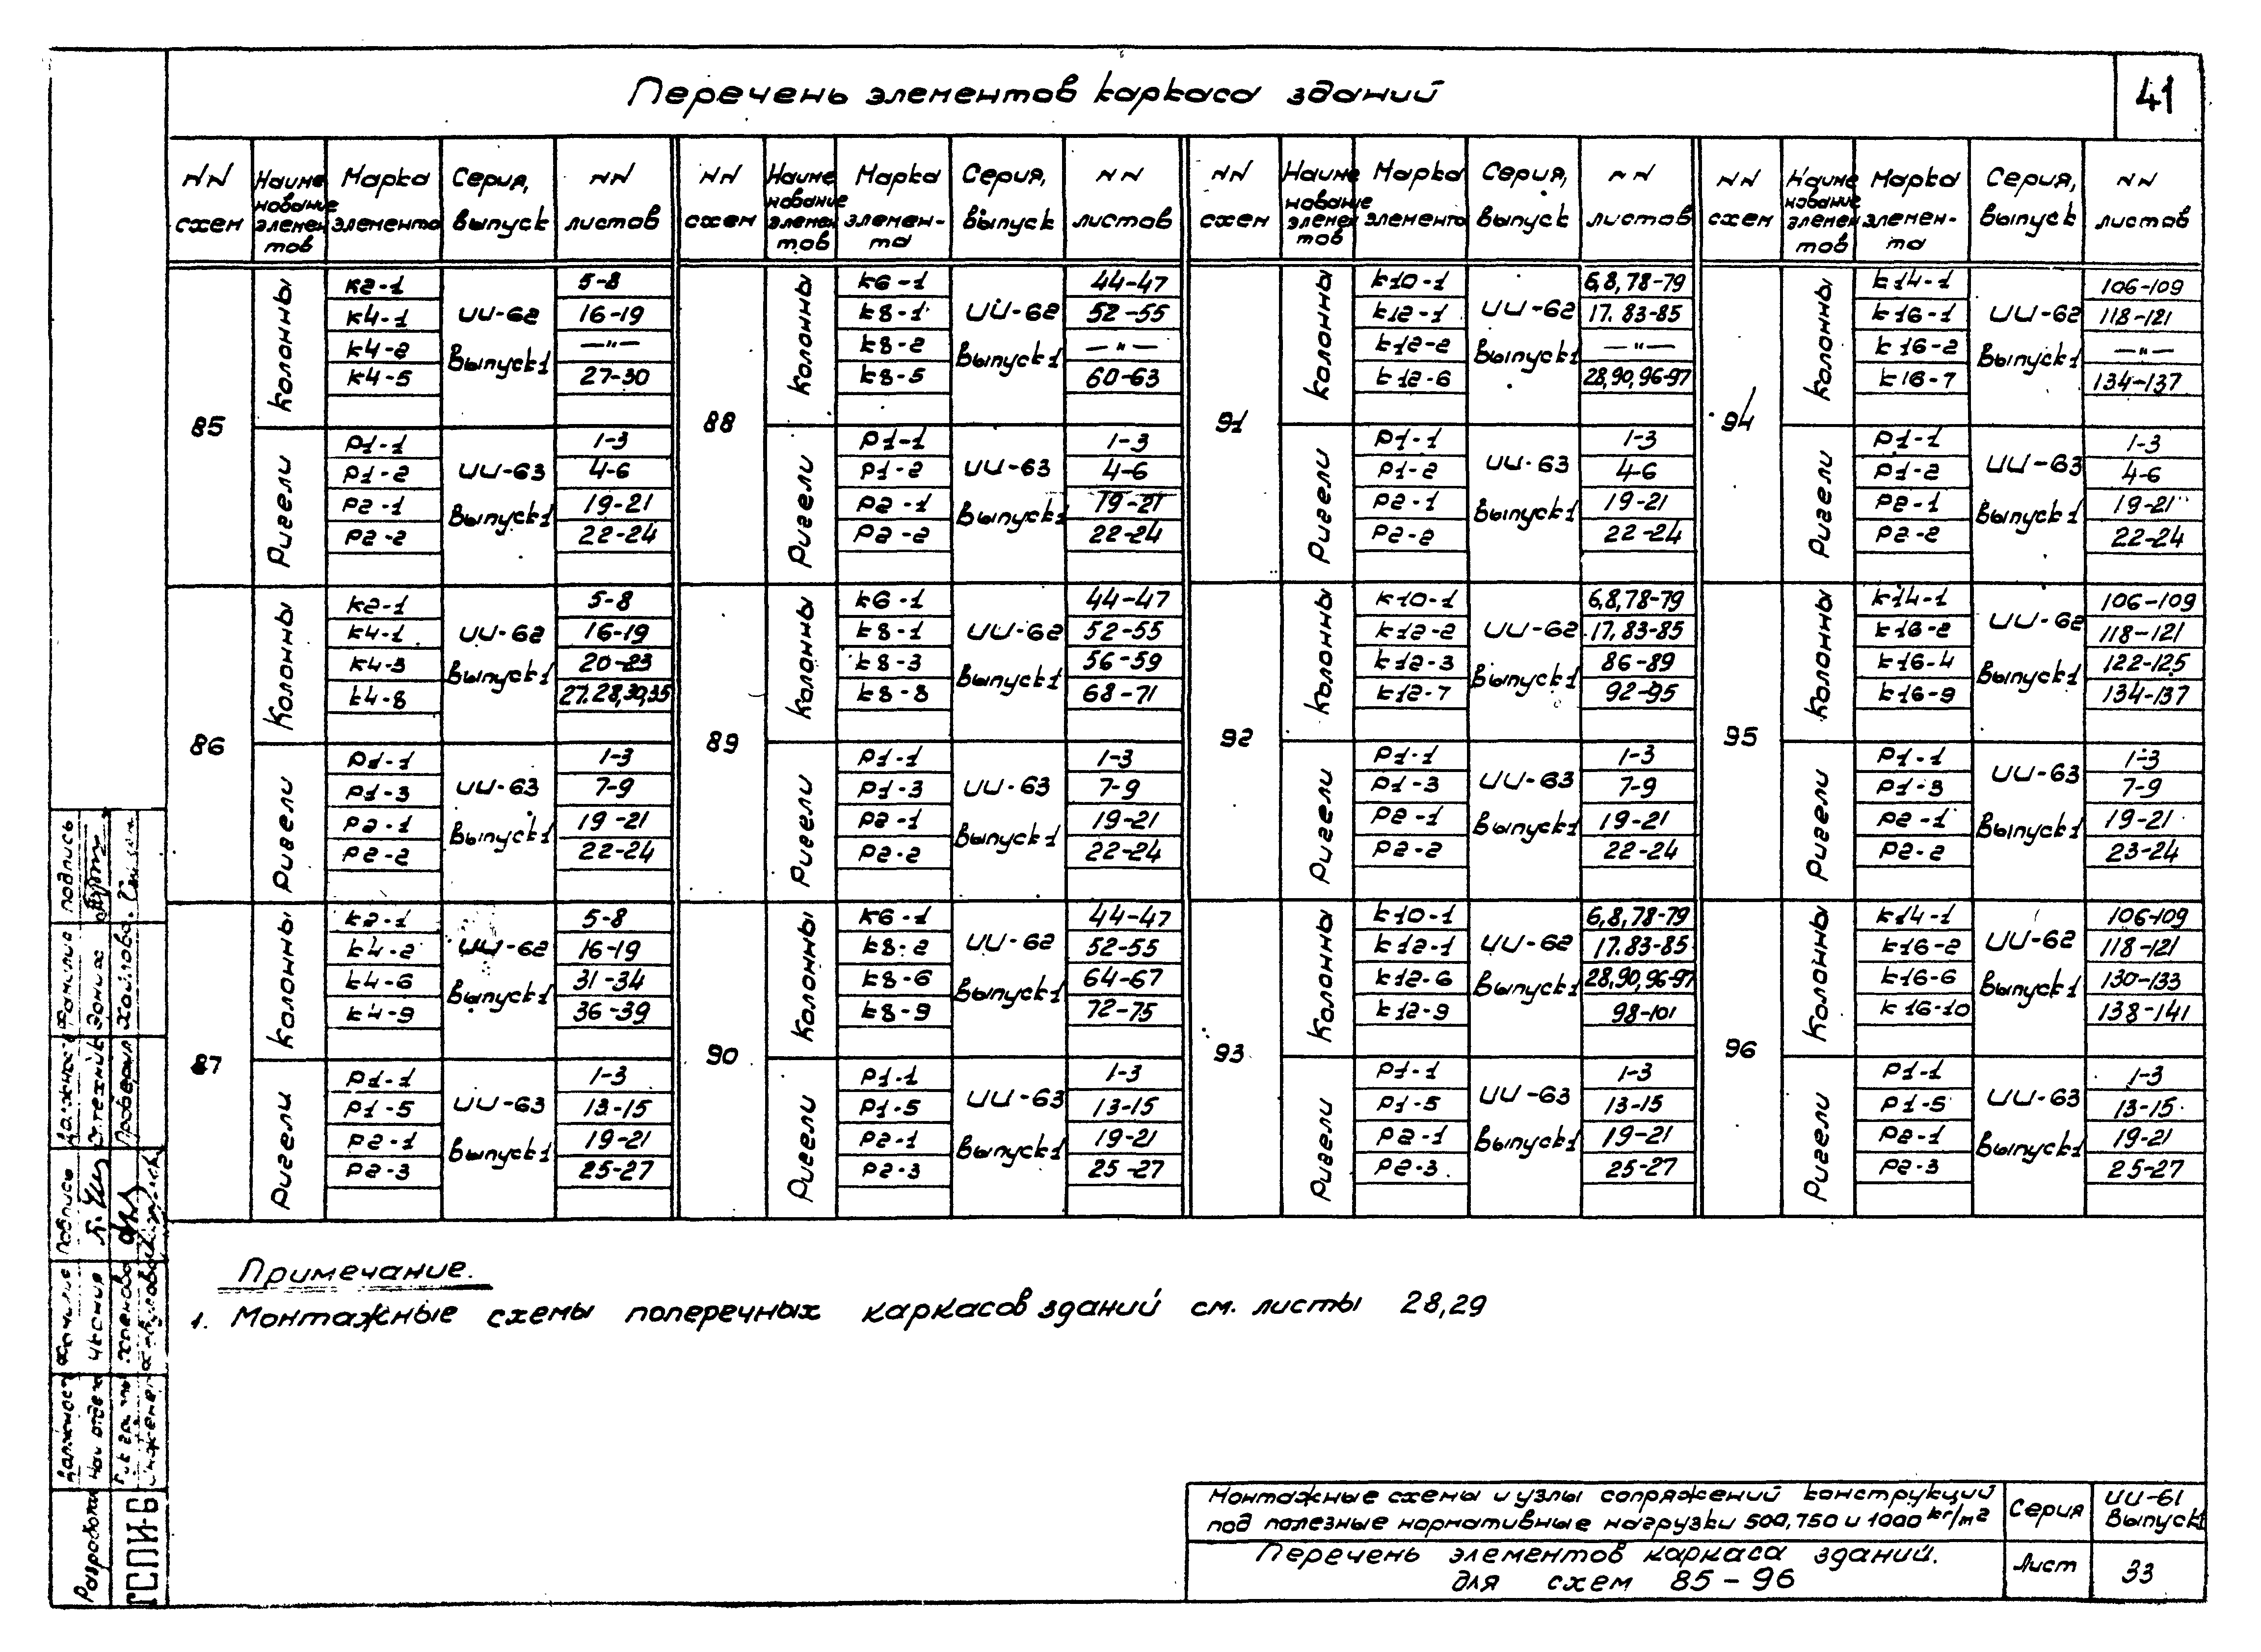 Перечень элементов каркаса зданий
41
NN схем | Наименование элементов | Марка элемента | Серия, выпуск | NN листов
NN схем | Наименование элементов | Марка элемента | Серия, выпуск | NN листов
NN схем | Наименование элементов | Марка элемента | Серия, выпуск | NN листов
NN схем | Наименование элементов | Марка элемента | Серия, выпуск | NN листов
85
Колонны
ИИ-62 Выпуск 1
К2-1 5-8
К4-1 16-19
К4-2 —"—
К4-5 27-30
Ригели
ИИ-63 Выпуск 1
Р1-1 1-3
Р1-2 4-6
Р2-1 19-21
Р2-2 22-24
86
Колонны
ИИ-62 Выпуск 1
К2-1 5-8
К4-1 16-19
К4-3 20-23
К4-8 27.28,30,35
Ригели
ИИ-63 Выпуск 1
Р1-1 1-3
Р1-3 7-9
Р2-1 19-21
Р2-2 22-24
87
Колонны
ИИ-62 Выпуск 1
К2-1 5-8
К4-2 16-19
К4-6 31-34
К4-9 36-39
Ригели
ИИ-63 Выпуск 1
Р1-1 1-3
Р1-5 13-15
Р2-1 19-21
Р2-3 25-27
88
Колонны
ИИ-62 Выпуск 1
К6-1 44-47
К8-1 52-55
К8-2 —"—
К8-5 60-63
Ригели
ИИ-63 Выпуск 1
Р1-1 1-3
Р1-2 4-6
Р2-1 19-21
Р2-2 22-24
89
Колонны
ИИ-62 Выпуск 1
К6-1 44-47
К8-1 52-55
К8-3 56-59
К8-8 68-71
Ригели
ИИ-63 Выпуск 1
Р1-1 1-3
Р1-3 7-9
Р2-1 19-21
Р2-2 22-24
90
Колонны
ИИ-62 Выпуск 1
К6-1 44-47
К8-2 52-55
К8-6 64-67
К8-9 72-75
Ригели
ИИ-63 Выпуск 1
Р1-1 1-3
Р1-5 13-15
Р2-1 19-21
Р2-3 25-27
91
Колонны
ИИ-62 Выпуск 1
К10-1 6,8,78-79
К12-1 17.83-85
К12-2 —"—
К12-6 28,90,96-97
Ригели
ИИ-63 Выпуск 1
Р1-1 1-3
Р1-2 4-6
Р2-1 19-21
Р2-2 22-24
92
Колонны
ИИ-62 Выпуск 1
К10-1 6,8,78-79
К12-2 17.83-85
К12-3 86-89
К12-7 92-95
Ригели
ИИ-63 Выпуск 1
Р1-1 1-3
Р1-3 7-9
Р2-1 19-21
Р2-2 22-24
93
Колонны
ИИ-62 Выпуск 1
К10-1 6,8,78-79
К12-1 17.83-85
К12-6 28,90,96-97
К12-9 98-101
Ригели
ИИ-63 Выпуск 1
Р1-1 1-3
Р1-5 13-15
Р2-1 19-21
Р2-3 25-27
94
Колонны
ИИ-62 Выпуск 1
К14-1 106-109
К16-1 118-121
К16-2 —"—
К16-7 134-137
Ригели
ИИ-63 Выпуск 1
Р1-1 1-3
Р1-2 4-6
Р2-1 19-21
Р2-2 22-24
95
Колонны
ИИ-62 Выпуск 1
К14-1 106-109
К16-2 118-121
К16-4 122-125
К16-9 134-137
Ригели
ИИ-63 Выпуск 1
Р1-1 1-3
Р1-3 7-9
Р2-1 19-21
Р2-2 23-24
96
Колонны
ИИ-62 Выпуск 1
К14-1 106-109
К16-2 118-121
К16-6 130-133
К16-10 138-141
Ригели
ИИ-63 Выпуск 1
Р1-1 1-3
Р1-5 13-15
Р2-1 19-21
Р2-3 25-27
Примечание.
1. Монтажные схемы поперечных каркасов зданий см. листы 28,29
Монтажные схемы и узлы сопряжений конструкций
под полезные нормативные нагрузки 500, 750 и 1000 кг/м2
Серия
ИИ-61
Выпуск 1
Перечень элементов каркаса зданий.
для схем 85-96
Лист
33
Должность Фамилия Подпись
Ст.техник
Проверил
Должность Фамилия Подпись
Нач отдела
Инженер
Разработал
ГСПИ-6